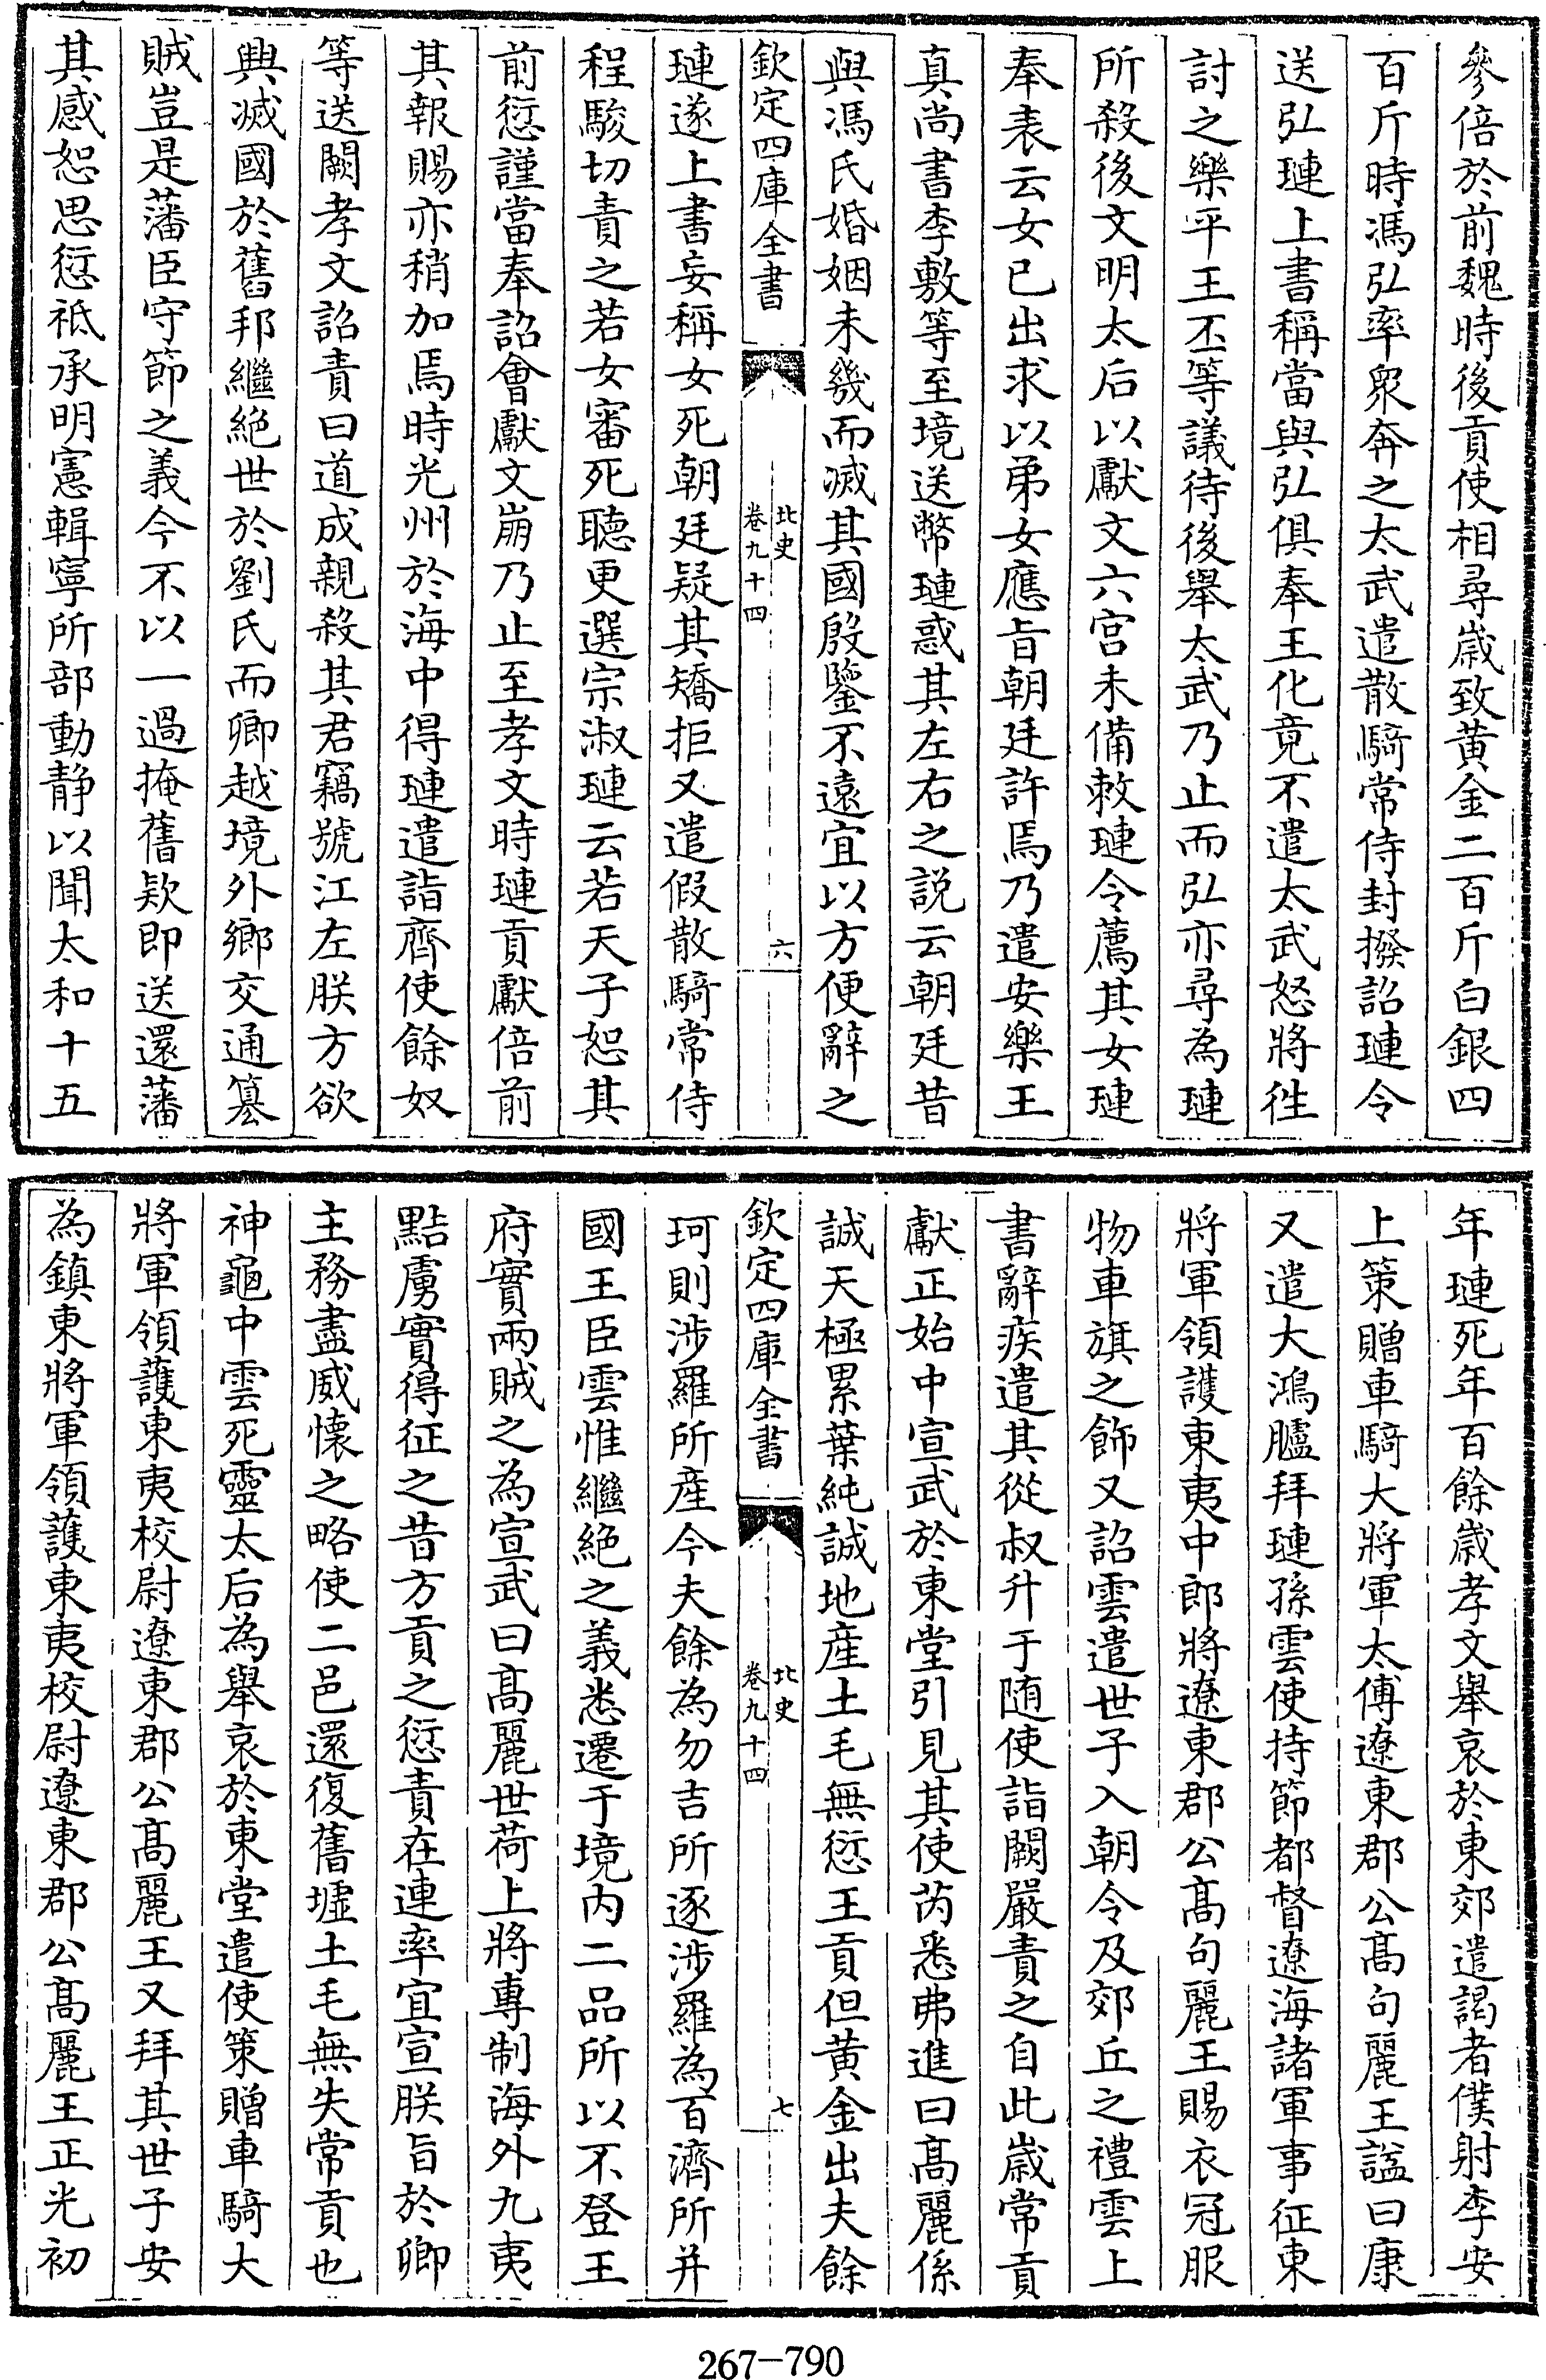 參倍於前魏時後貢使相尋歲致黄金二百斤白銀四
百斤時馮弘率衆奔之太武遣散騎常侍封撥詔璉令
送弘璉上書稱當與弘俱奉王化竟不遣太武怒將徃
討之樂平王丕等議待後舉太武乃止而弘亦尋為璉
所殺後文明太后以獻文六宫未備敕璉令薦其女璉
奉表云女已出求以弟女應旨朝廷許焉乃遣安樂王
真尚書李敷等至境送幣璉惑其左右之説云朝廷昔
與馮氏婚姻未幾而滅其國殷鑒不遠宜以方便辭之
欽定四庫全書
北史
卷九十四
六
璉遂上書妄稱女死朝廷疑其矯拒又遣假散騎常侍
程駿切責之若女審死聽更選宗淑璉云若天子恕其
前愆謹當奉詔會獻文崩乃止至孝文時璉貢獻倍前
其報賜亦稍加焉時光州於海中得璉遣詣齊使餘奴
等送闕孝文詔責曰道成親殺其君竊號江左朕方欲
興滅國於舊邦繼絶世於劉氏而卿越境外鄉交通簒
賊豈是藩臣守節之義今不以一過掩舊欵即送還藩
其感恕思愆祗承明憲輯寧所部動静以聞太和十五
年璉死年百餘歲孝文舉哀於東郊遣謁者僕射李安
上策贈車騎大將軍太傅遼東郡公髙句麗王謚曰康
又遣大鴻臚拜璉孫雲使持節都督遼海諸軍事征東
將軍領護東夷中郎將遼東郡公髙句麗王賜衣冠服
物車旗之飾又詔雲遣世子入朝令及郊丘之禮雲上
書辭疾遣其從叔升于随使詣闕嚴責之自此歲常貢
獻正始中宣武於東堂引見其使芮悉弗進曰髙麗係
誠天極累葉純誠地産土毛無愆王貢但黄金出夫餘
欽定四庫全書
北史
卷九十四
七
珂則涉羅所産今夫餘為勿吉所逐涉羅為百濟所并
國王臣雲惟繼絶之義悉遷于境内二品所以不登王
府實兩賊之為宣武曰髙麗世荷上將專制海外九夷
點虜實得征之昔方貢之愆責在連率宜宣朕旨於卿
主務盡威懷之略使二邑還復舊墟土毛無失常貢也
神龜中雲死靈太后為舉哀於東堂遣使策贈車騎大
將軍領護東夷校尉遼東郡公髙麗王又拜其世子安
為鎮東將軍領護東夷校尉遼東郡公髙麗王正光初
267-790